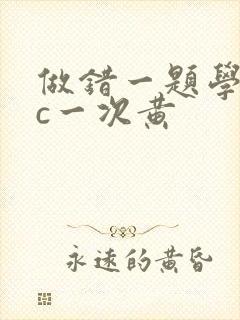 做錯一題學
c一次黃
永遠的黃昏